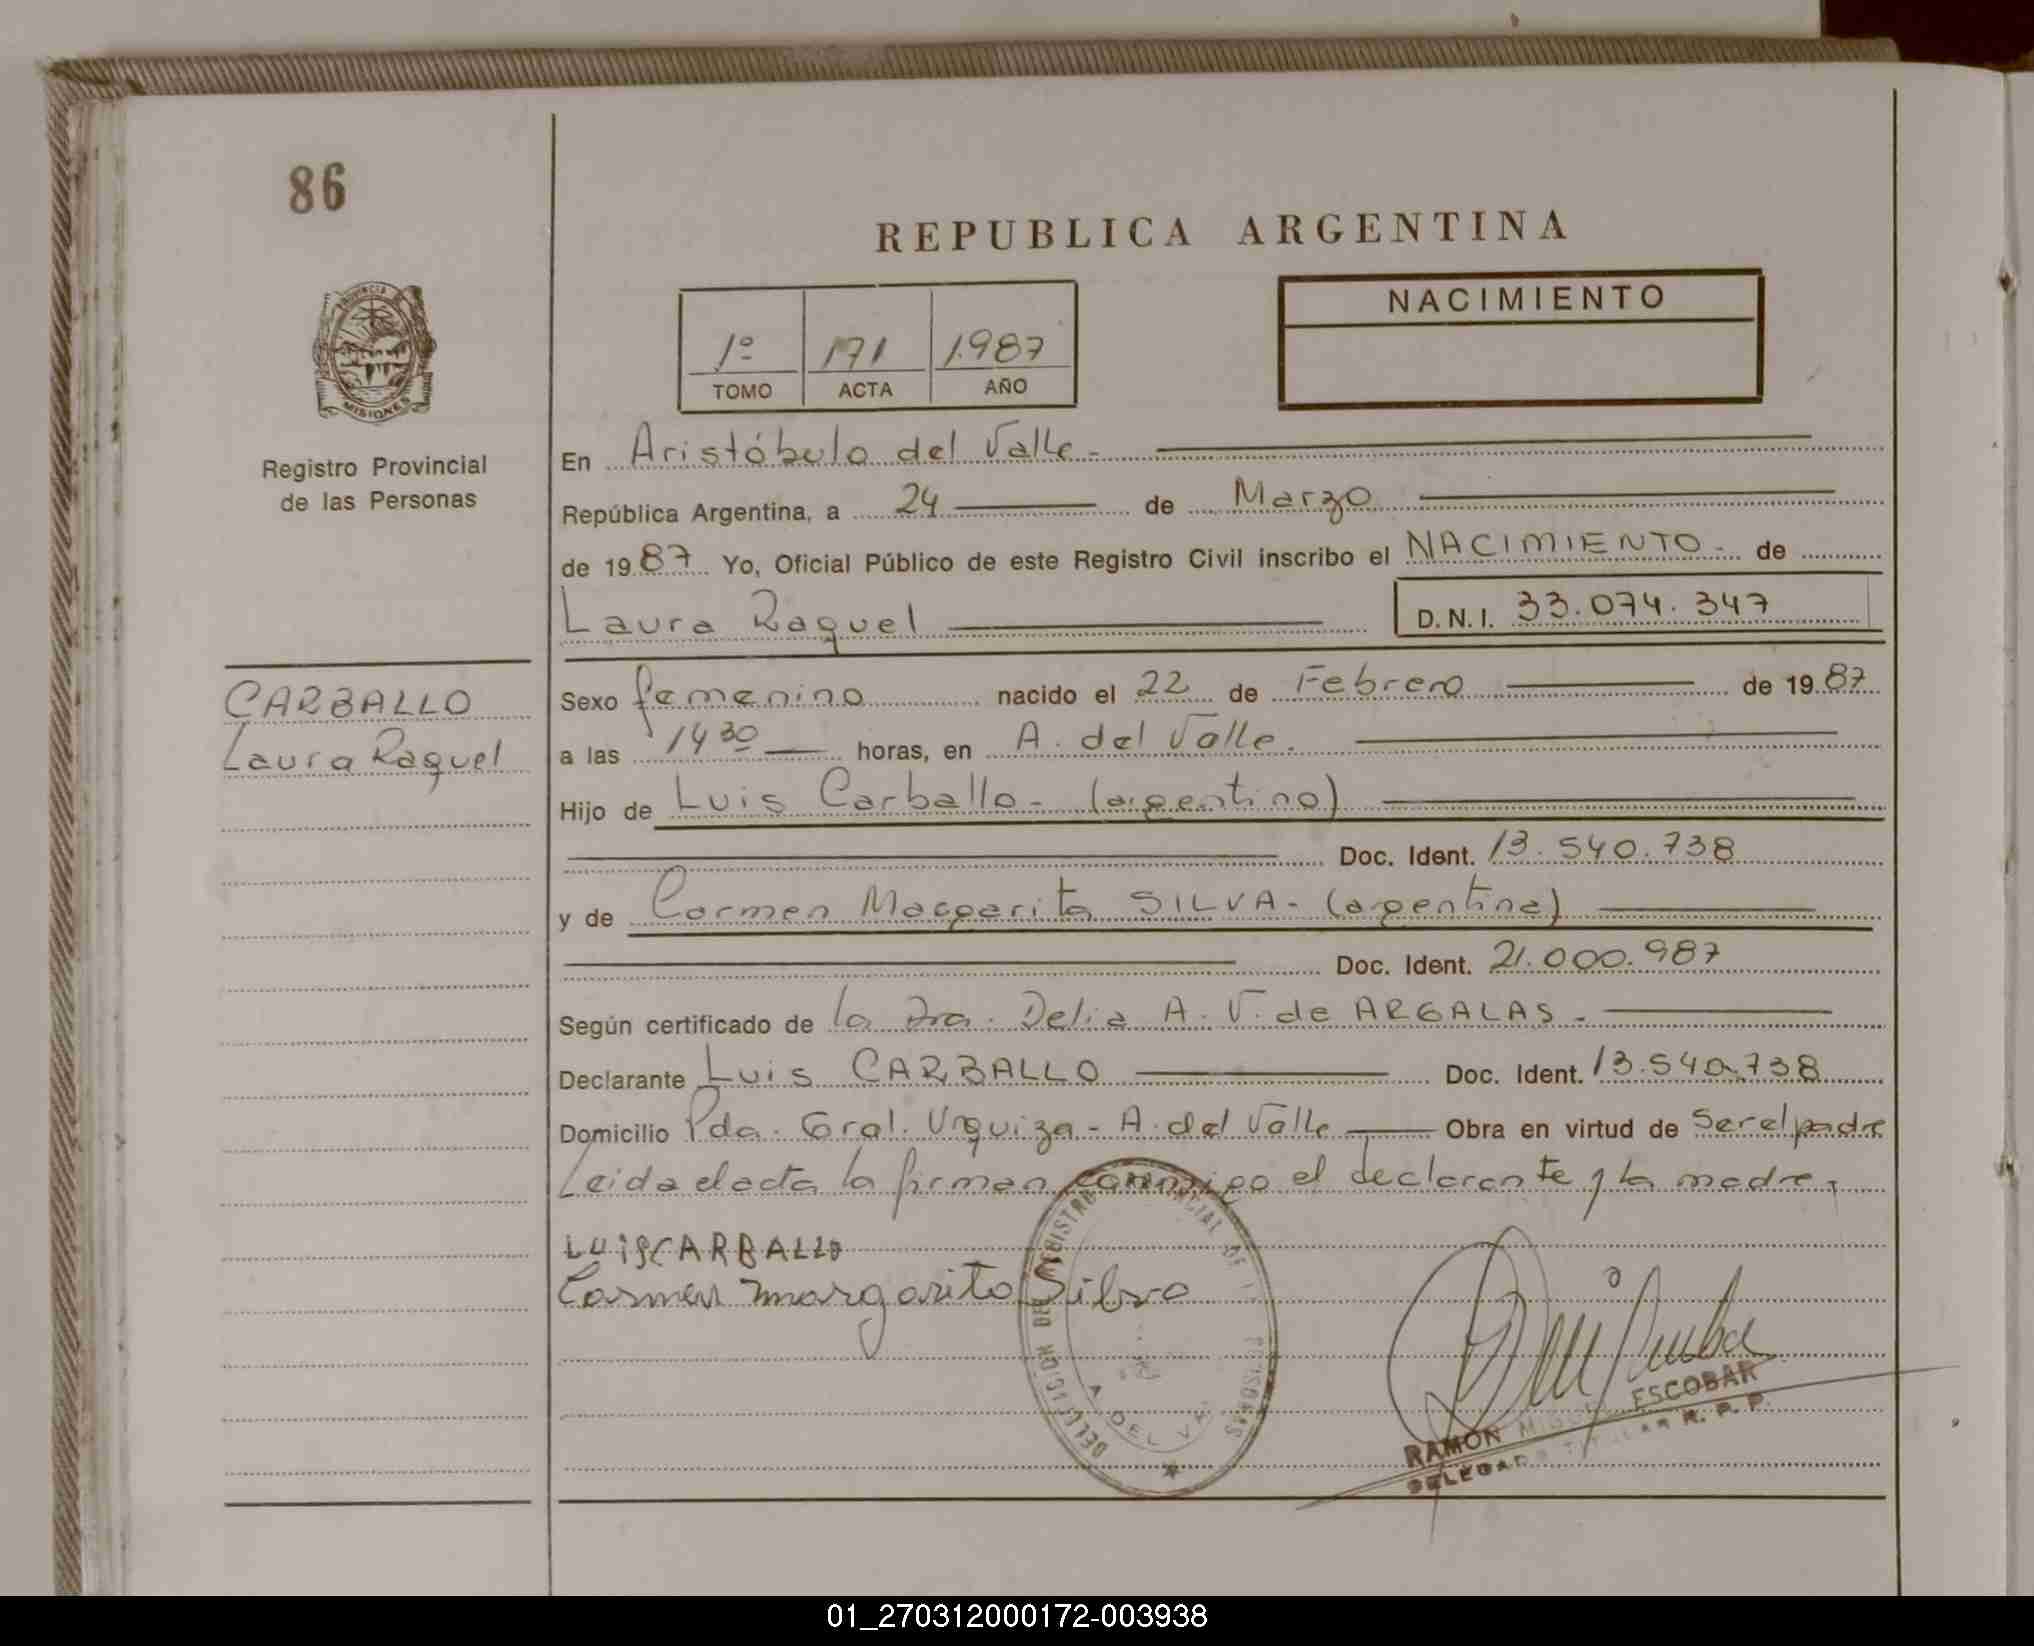 86
REPUBLICA ARGENTINA
NACIMIENTO
1º 171 1.987
TOMO ACTA AÑO
PROVINCIA DE
MISIONES
Registro Provincial
de las Personas
CARBALLO
Laura Raquel
En Aristóbulo del Valle -
República Argentina, a 24 de Marzo
de 1987 Yo, Oficial Público de este Registro Civil inscribo el NACIMIENTO - de
Laura Raquel D.N.I. 33.074.347
Sexo femenino nacido el 22 de Febrero de 1987
a las 14 30 horas, en A. del Valle.
Hijo de Luis Carballo - (argentino)
Doc. Ident. 13.540.738
y de Carmen Margarita SILVA - (argentina)
Doc. Ident. 21.000.987
Según certificado de la Dra. Delia A. V. de ARGALAS -
Declarante Luis CARBALLO Doc. Ident. 13.540.738
Domicilio Pda. Gral. Urquiza - A. del Valle Obra en virtud de Ser el padre
Leida el acta la firman conmigo el declarante y la madre.
LUIS CARBALLO
Carmen margarita Silva
DELEGACION DEL REGISTRO PROVINCIAL DE PERSONAS
A. DEL VA
RAMON MIGUEL ESCOBAR
DELEGADO TITULAR R. P. P.
01_270312000172-003938